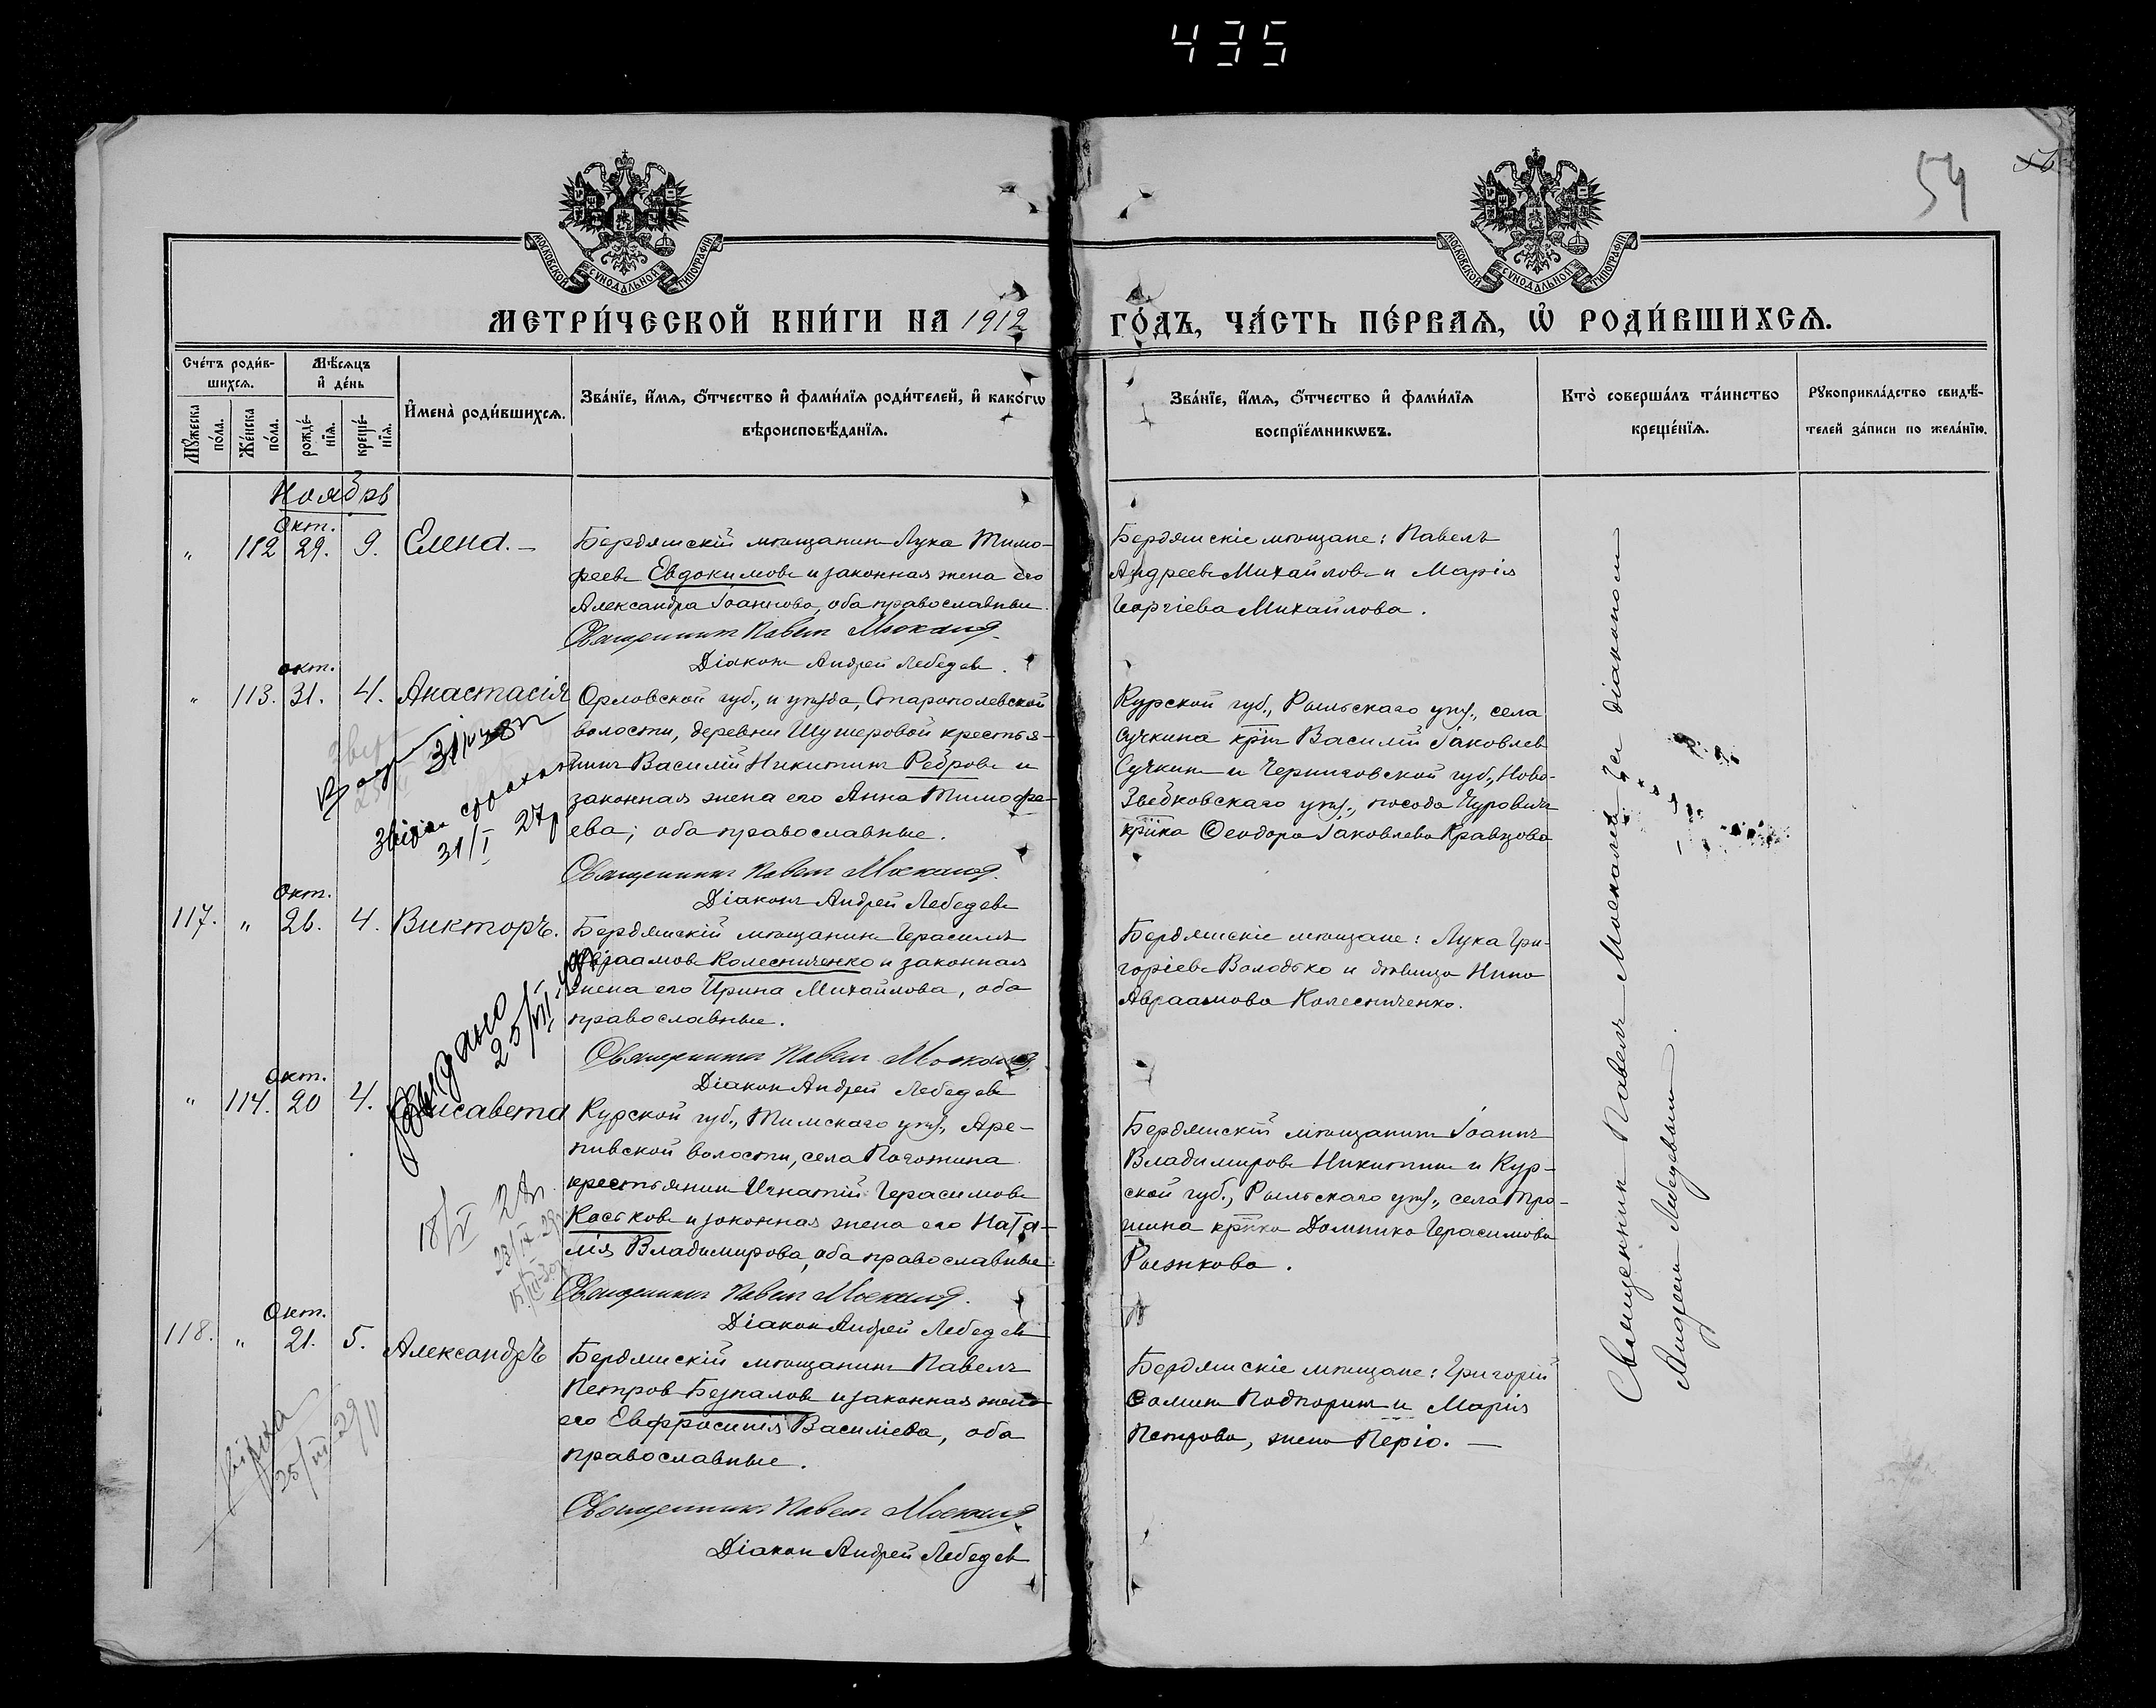 435
54
МОСКОВСКОЙ СѴНОДАЛЬНОЙ ТИПОГРАФІИ
МОСКОВСКОЙ СѴНОДАЛЬНОЙ ТИПОГРАФІИ
МЕТРИ́ЧЕСКОЙ КНИ́ГИ НА 1912
ГО́ДЪ, ЧА́СТЬ ПЕ́РВАѦ, Ѡ҆ РОДИ́ВШИХСѦ.
Сче́тъ роди́в-
шихсѧ.
Мѣ́сѧцъ
и҆ де́нь
Мꙋ́жеска
по́ла.
Же́нска
по́ла.
рожде́-
нїѧ.
креще́-
нїѧ.
И҆мена̀ роди́вшихсѧ.
Зва́нїе, и҆́мѧ, ѻ҆́тчество и҆ фами́лїѧ роди́телей, и҆ како́гѡ
вѣроисповѣ́данїѧ.
Зва́нїе, и҆́мѧ, ѻ҆́тчество и҆ фами́лїѧ
воспрїе́мникѡвъ.
Кто̀ соверша́лъ та́инство
креще́нїѧ.
Рꙋкоприкла́дство свидѣ́-
телей за́писи по жела́нїю.
Ноябрь
Окт.
" 112 29. 9. Елена. –
Бердянскій мѣщанинъ Лука Тимо-
феевъ Евдокимовъ и законная жена его
Александра Іоаннова, оба православные.
Священникъ Павелъ
Діаконъ Андрей Лебедевъ.
Бердянскіе мѣщане: Павелъ
Андреевъ Михайловъ и Марія
Георгіева Михайлова.
окт.
" 113. 31. 4. Анастасія
Орловской губ., и уѣзда, Старополевской
волости, деревни Шумеровой крестья-
нинъ Василій Никитинъ Ребровъ и
законная жена его Анна Тимофе-
ева; оба православные.
Священникъ Павелъ
Діаконъ Андрей Лебедевъ
31/I 27р
Курской губ., Рыльскаго уѣз., села
Сучкина кр҃нъ Василій Іаковлевъ
Сучкинъ и Черниговской губ., Ново-
Зыбковскаго уѣз., посада Чуровичъ
кр҃нка Ѳеодора Іаковлева Кравцова
Окт.
117. " 26. 4. Викторъ.
Бердянскій мѣщанинъ Герасимъ
Авраамовъ Колесниченко и законная
жена его Ирина Михайлова, оба
православные.
Священникъ Павелъ
Діаконъ Андрей Лебедевъ
Выдано
25/VII
Бердянскіе мѣщане: Лука Гри-
горіевъ Володько и дѣвица Нина
Авраамова Колесниченко.
Окт.
" 114. 20 4. Елисавета
Курской губ., Тимскаго уѣз.,
волости, села Погожина
крестьянинъ Игнатій Герасимовъ
Костковъ и законная жена его Ната-
лія Владимирова, оба православные.
Священникъ Павелъ
Діаконъ Андрей Лебедевъ
Бердянскій мѣщанинъ Іоаннъ
Владимировъ Никитинъ и Кур-
ской губ., Рыльскаго уѣз., села
кр҃нка Домника Герасимова
Рыжкова.
Окт.
118. " 21. 5. Александръ
Бердянскій мѣщанинъ Павелъ
Петровъ Безпаловъ и законная жена
его Евфросинія Василіева, оба
православные.
Священникъ Павелъ
Діаконъ Андрей Лебедевъ
25/VII 29
Бердянскіе мѣщане: Григорій
Подпоринъ и Марія
Петрова, жена Перію. –
Священникъ Павелъ Москаловъ съ діакономъ
Андреемъ Лебедевымъ.